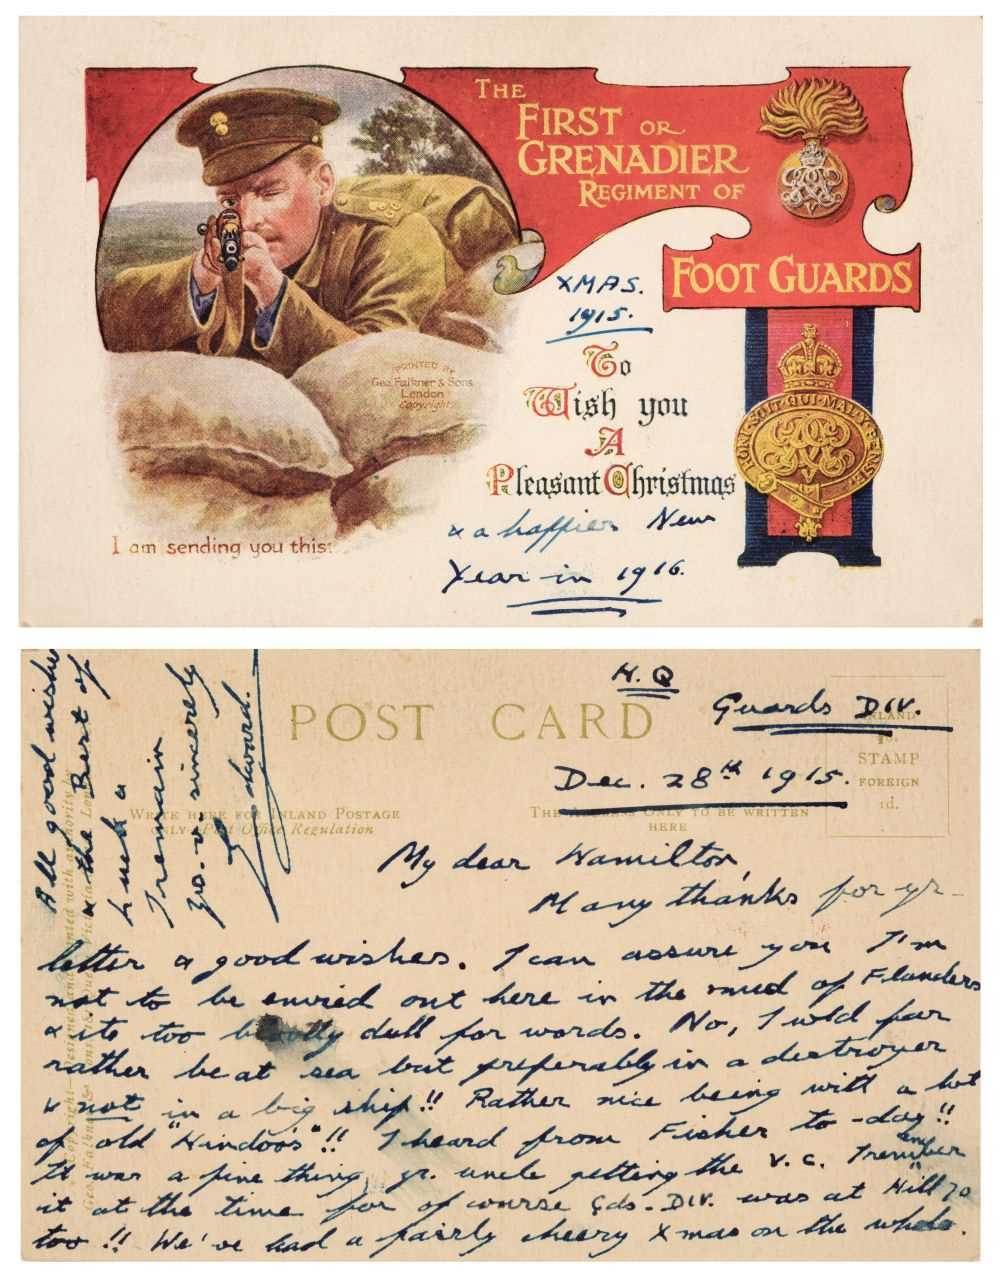 THE
FIRST OR
GRENADIER
REGIMENT OF
FOOT GUARDS
XMAS.
1915.
PRINTED BY
Geo. Falkner & Sons
London
Copyright
To
Wish you
A
Pleasant Christmas
HONI·SOIT·QUI·MAL·Y·PENSE
I am sending you this:
& a happier New
Year in 1916.
POST CARD
H.Q
Guards DIV.
INLAND
STAMP
FOREIGN
1d.
Dec. 28th 1915.
WRITE HERE FOR INLAND POSTAGE
ONLY Post Office Regulation
THE ADDRESS ONLY TO BE WRITTEN
HERE
My dear Hamilton,
Many thanks for yr-
letter & good wishes. I can assure you I'm
not to be envied out here in the mud of Flanders
& its too dull for words. No, I wld far
rather be at sea but preferably in a destroyer
& not in a big ship!! Rather nice being with a lot
of old "Hindoo's"!! I heard from Fisher to-day!!
It was a fine thing yr. uncle getting the V.C. I remember
it at the time for of course Gds. DIV. was at "Hill 70
too!! We've had a fairly cheery Xmas on the whole.
All good wishes
& the Best of
Luck &
I remain
yo. v. sincerely
Edward.